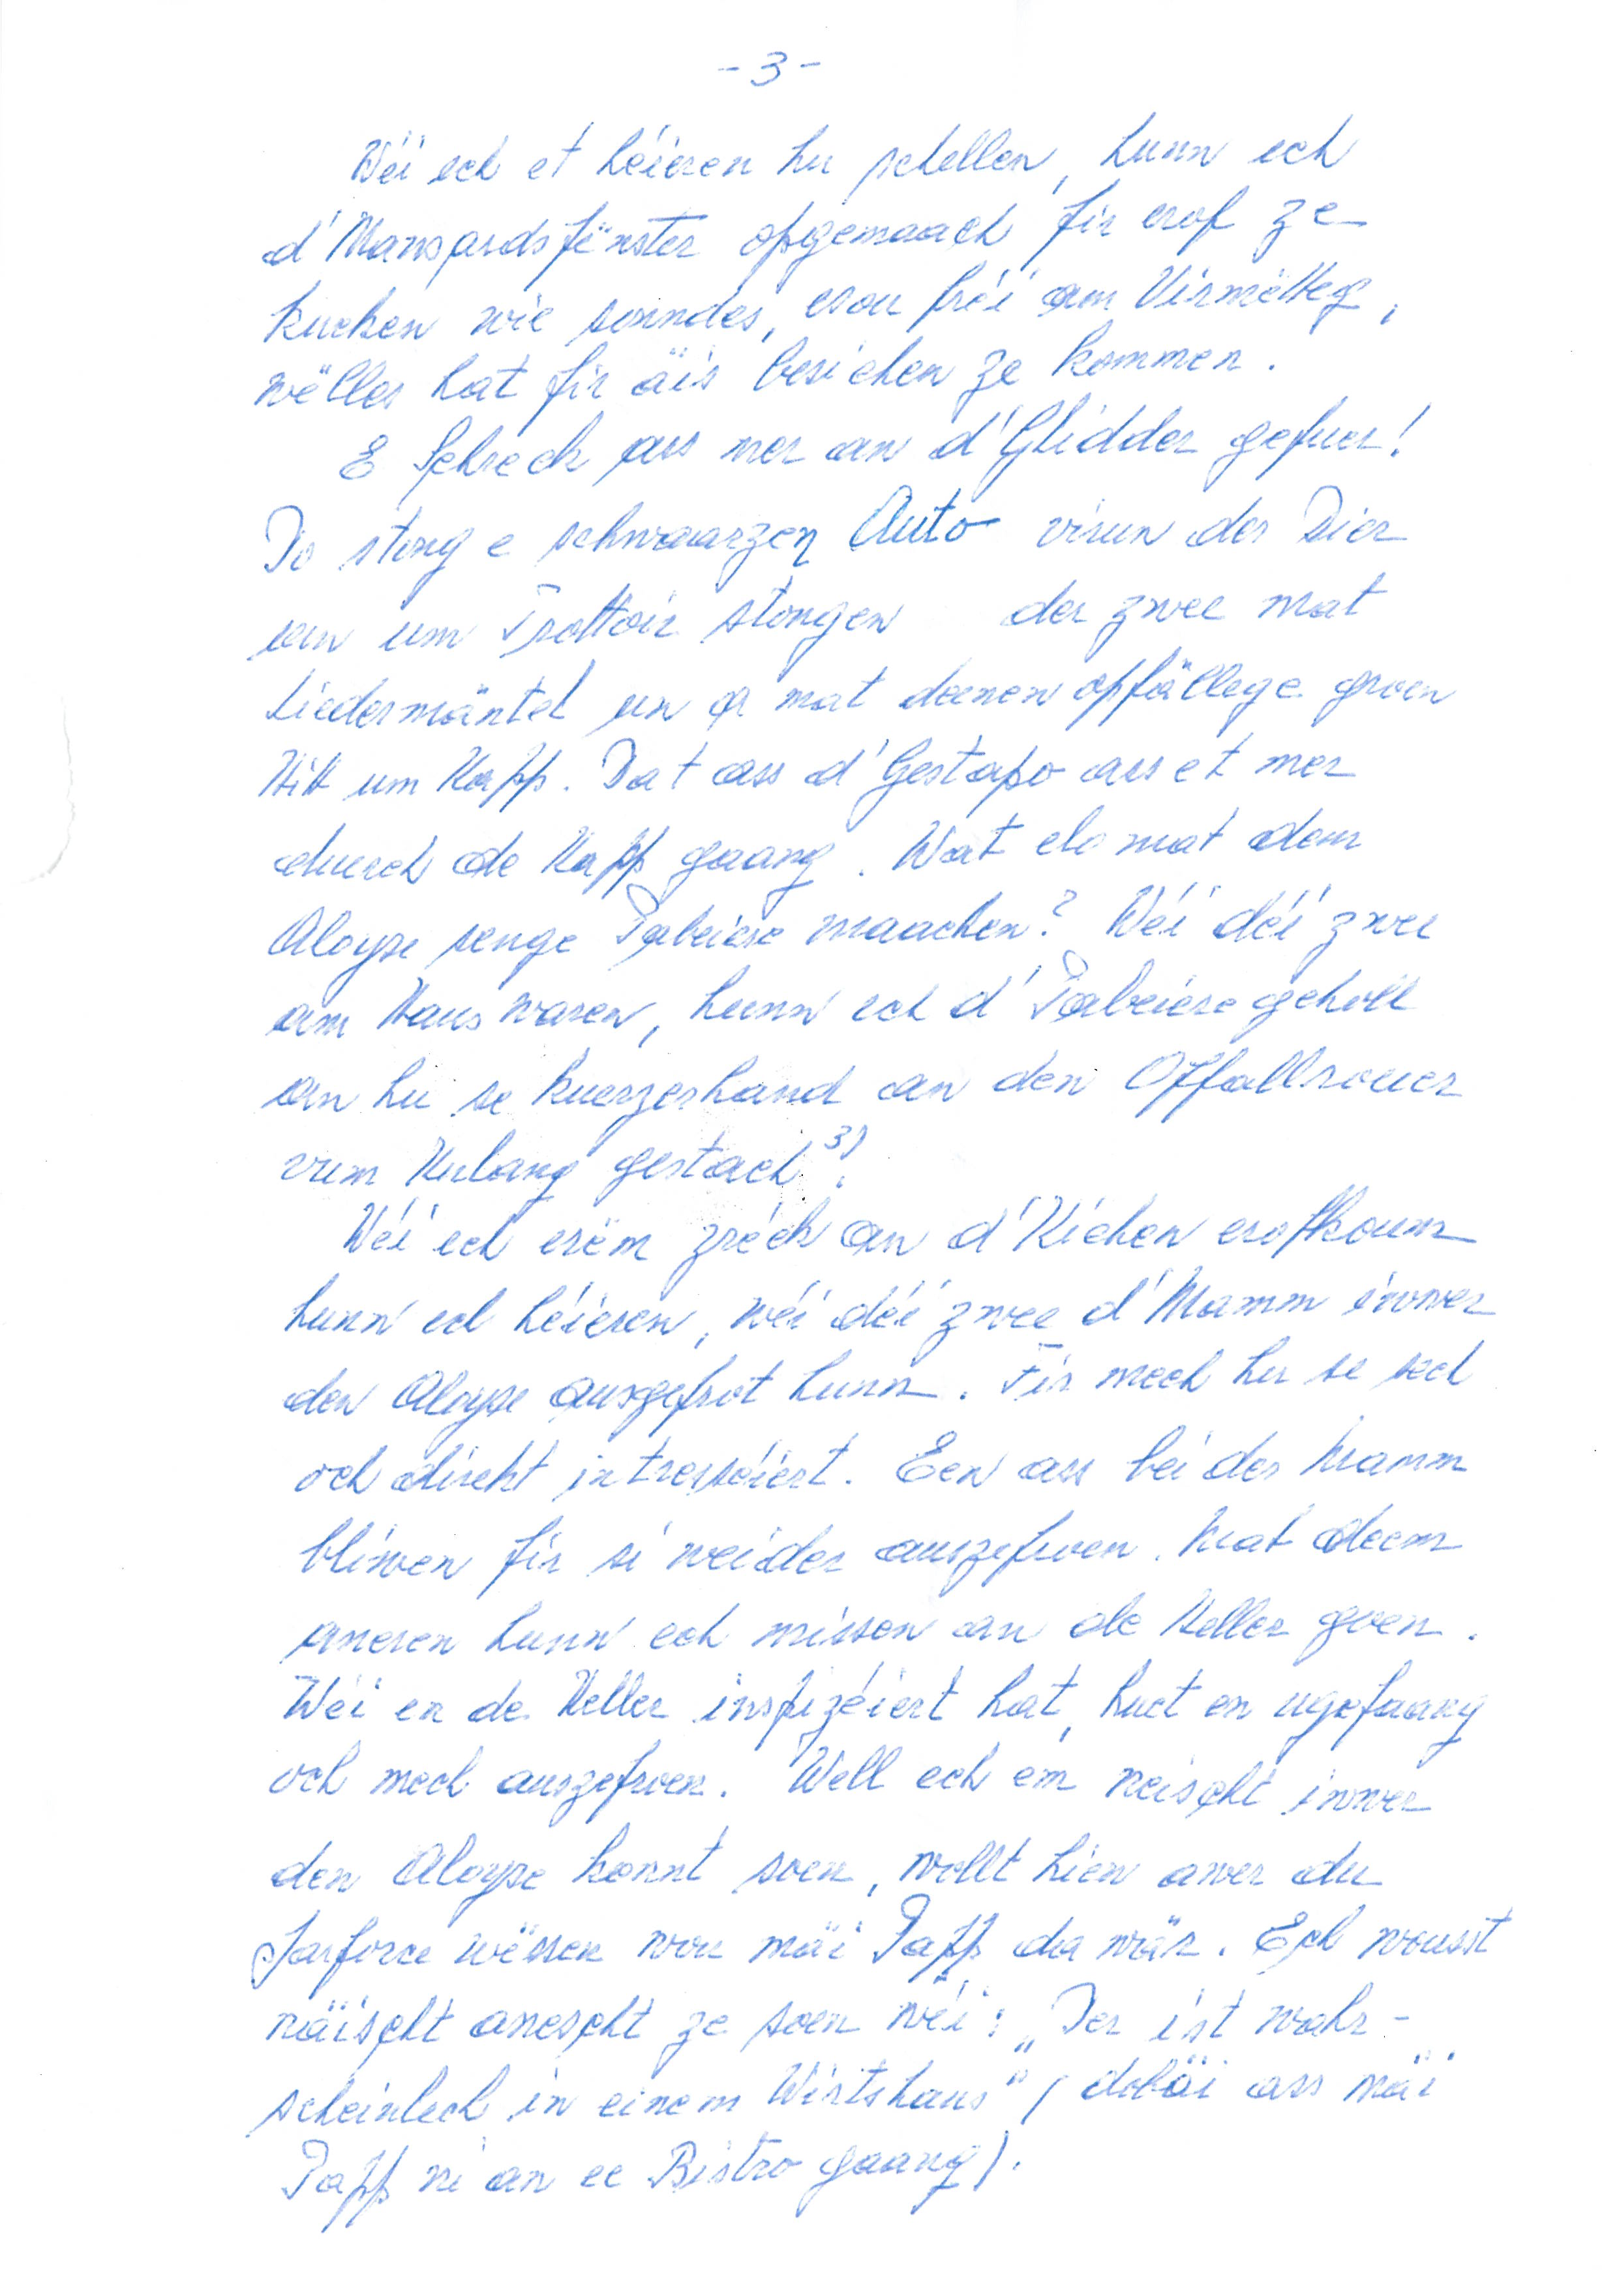 - 3 -
Wéi ech et héieren hu schellen, hunn ech
d'Mansardsfënster opgemaach fir erof ze
kucken wie sonndes, esou fréi am Virmëtteg,
wëlles hat fir äis besichen ze kommen.
E Schreck ass mer an d'Glidder gefuer!
Do stong e schwaarzen Auto virun der Dier
an um Trottoir stongen der zwee mat
Liedermäntel un a mat deenen opfällege groen
Hitt um Kapp. Dat ass d'Gestapo ass et mer
duerch de Kapp gaang. Wat elo mat dem
Aloyse senge Pabeiere maachen? Wéi déi zwee
am Haus waren, hunn ech d'Pabeiere geholl
an hu se kuerzerhand an den Offallrouer
vum Kulang gestach 3).
Wéi ech erëm zréck an d'Kichen erofkoum
hunn ech héieren, wéi déi zwee d'Mamm iwwer
den Aloyse ausgefrot hunn. Fir mech hu se sech
och direkt intresséiert. Een ass bei der Mamm
bliwen fir si weider auszefroen. Mat deem
aneren hunn ech missen an de Keller goen.
Wéi en de Keller inspizéiert hat, huet en ugefaang
och mech auszefroen. Well ech em neischt iwwer
den Aloyse konnt soen, wollt hien awer du
parforce wëssen wou mäi Papp da wär. Ech wousst
näischt anescht ze soen wéi: „Der ist wahr-
scheinlech in einem Wirtshaus" (dobäi ass mäi
Papp ni an ee Bistro gaang).